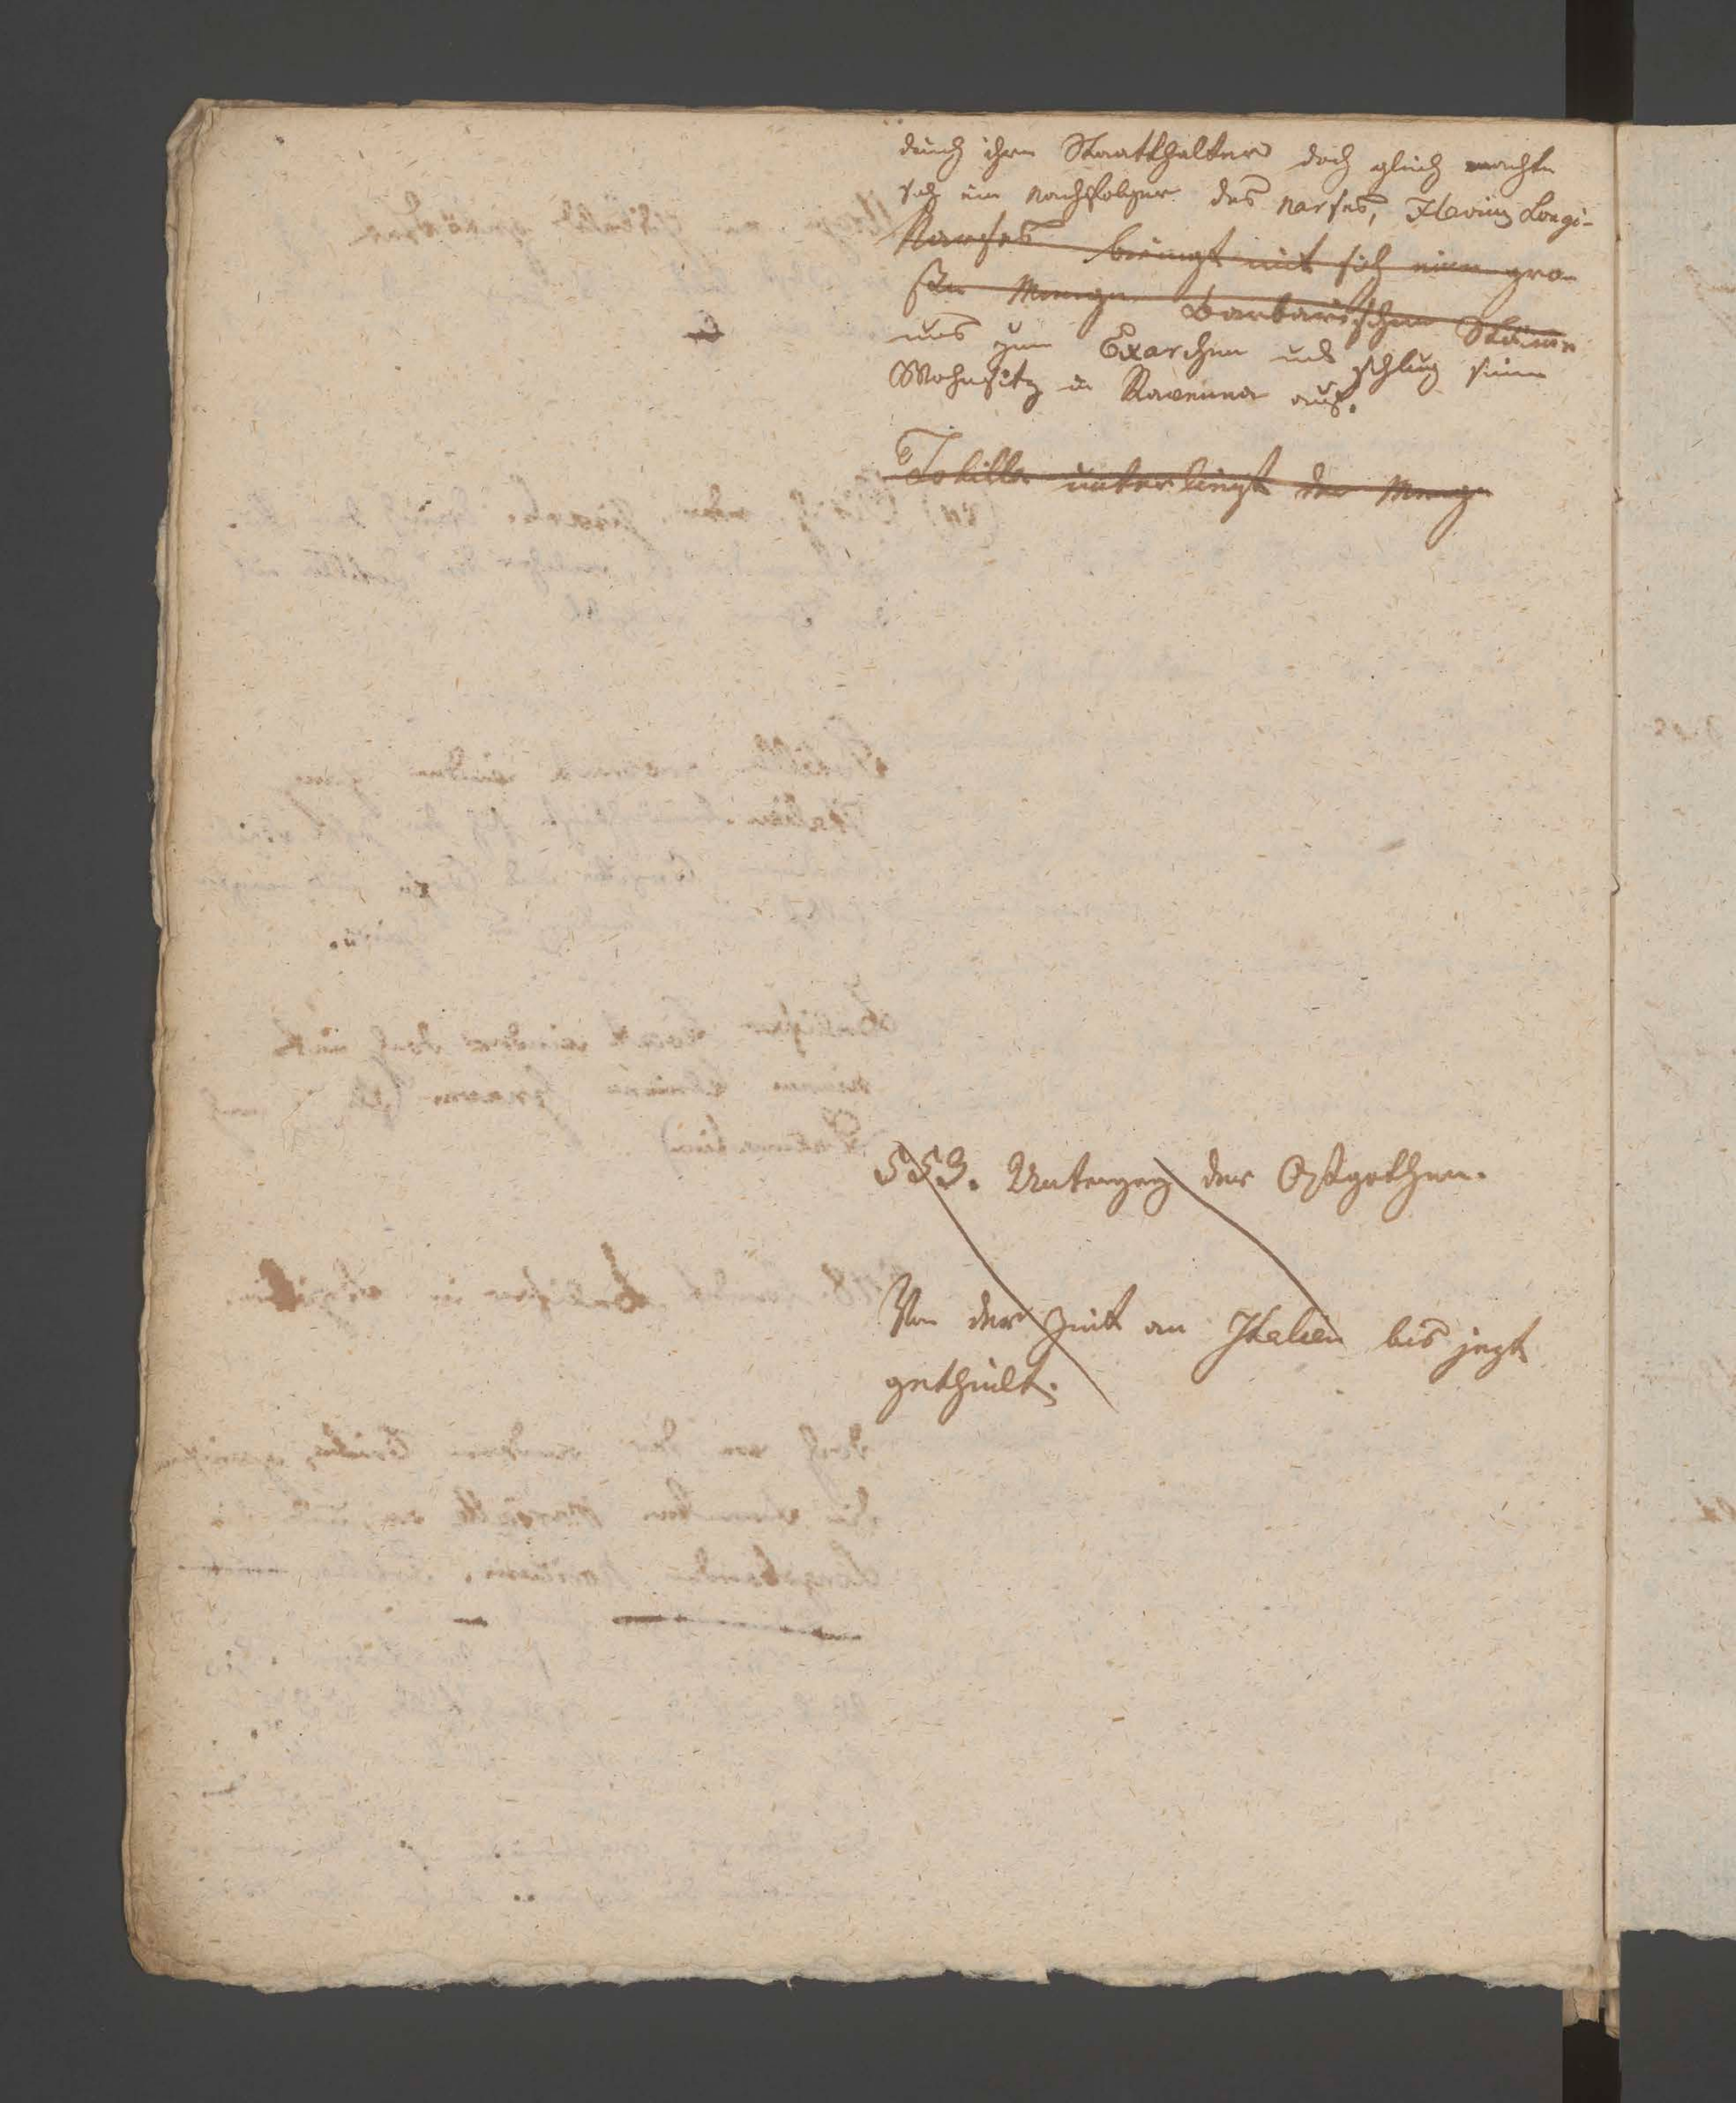 durch ihre Statthalter doch gleich machte
sich ein Nachfolger des Narses, Flavius Longi-
Narses bringt mit sich eine gro-
ße Menge Barbarischer Stäm̄e
nus zum Exarchen und schlug seine
Wohnsitz in Ravenna auf.
Totilla unterliegt der Menge
553. Untergang der Ostgothen.
Von der Zeit an Italien bis jezt
getheilt.